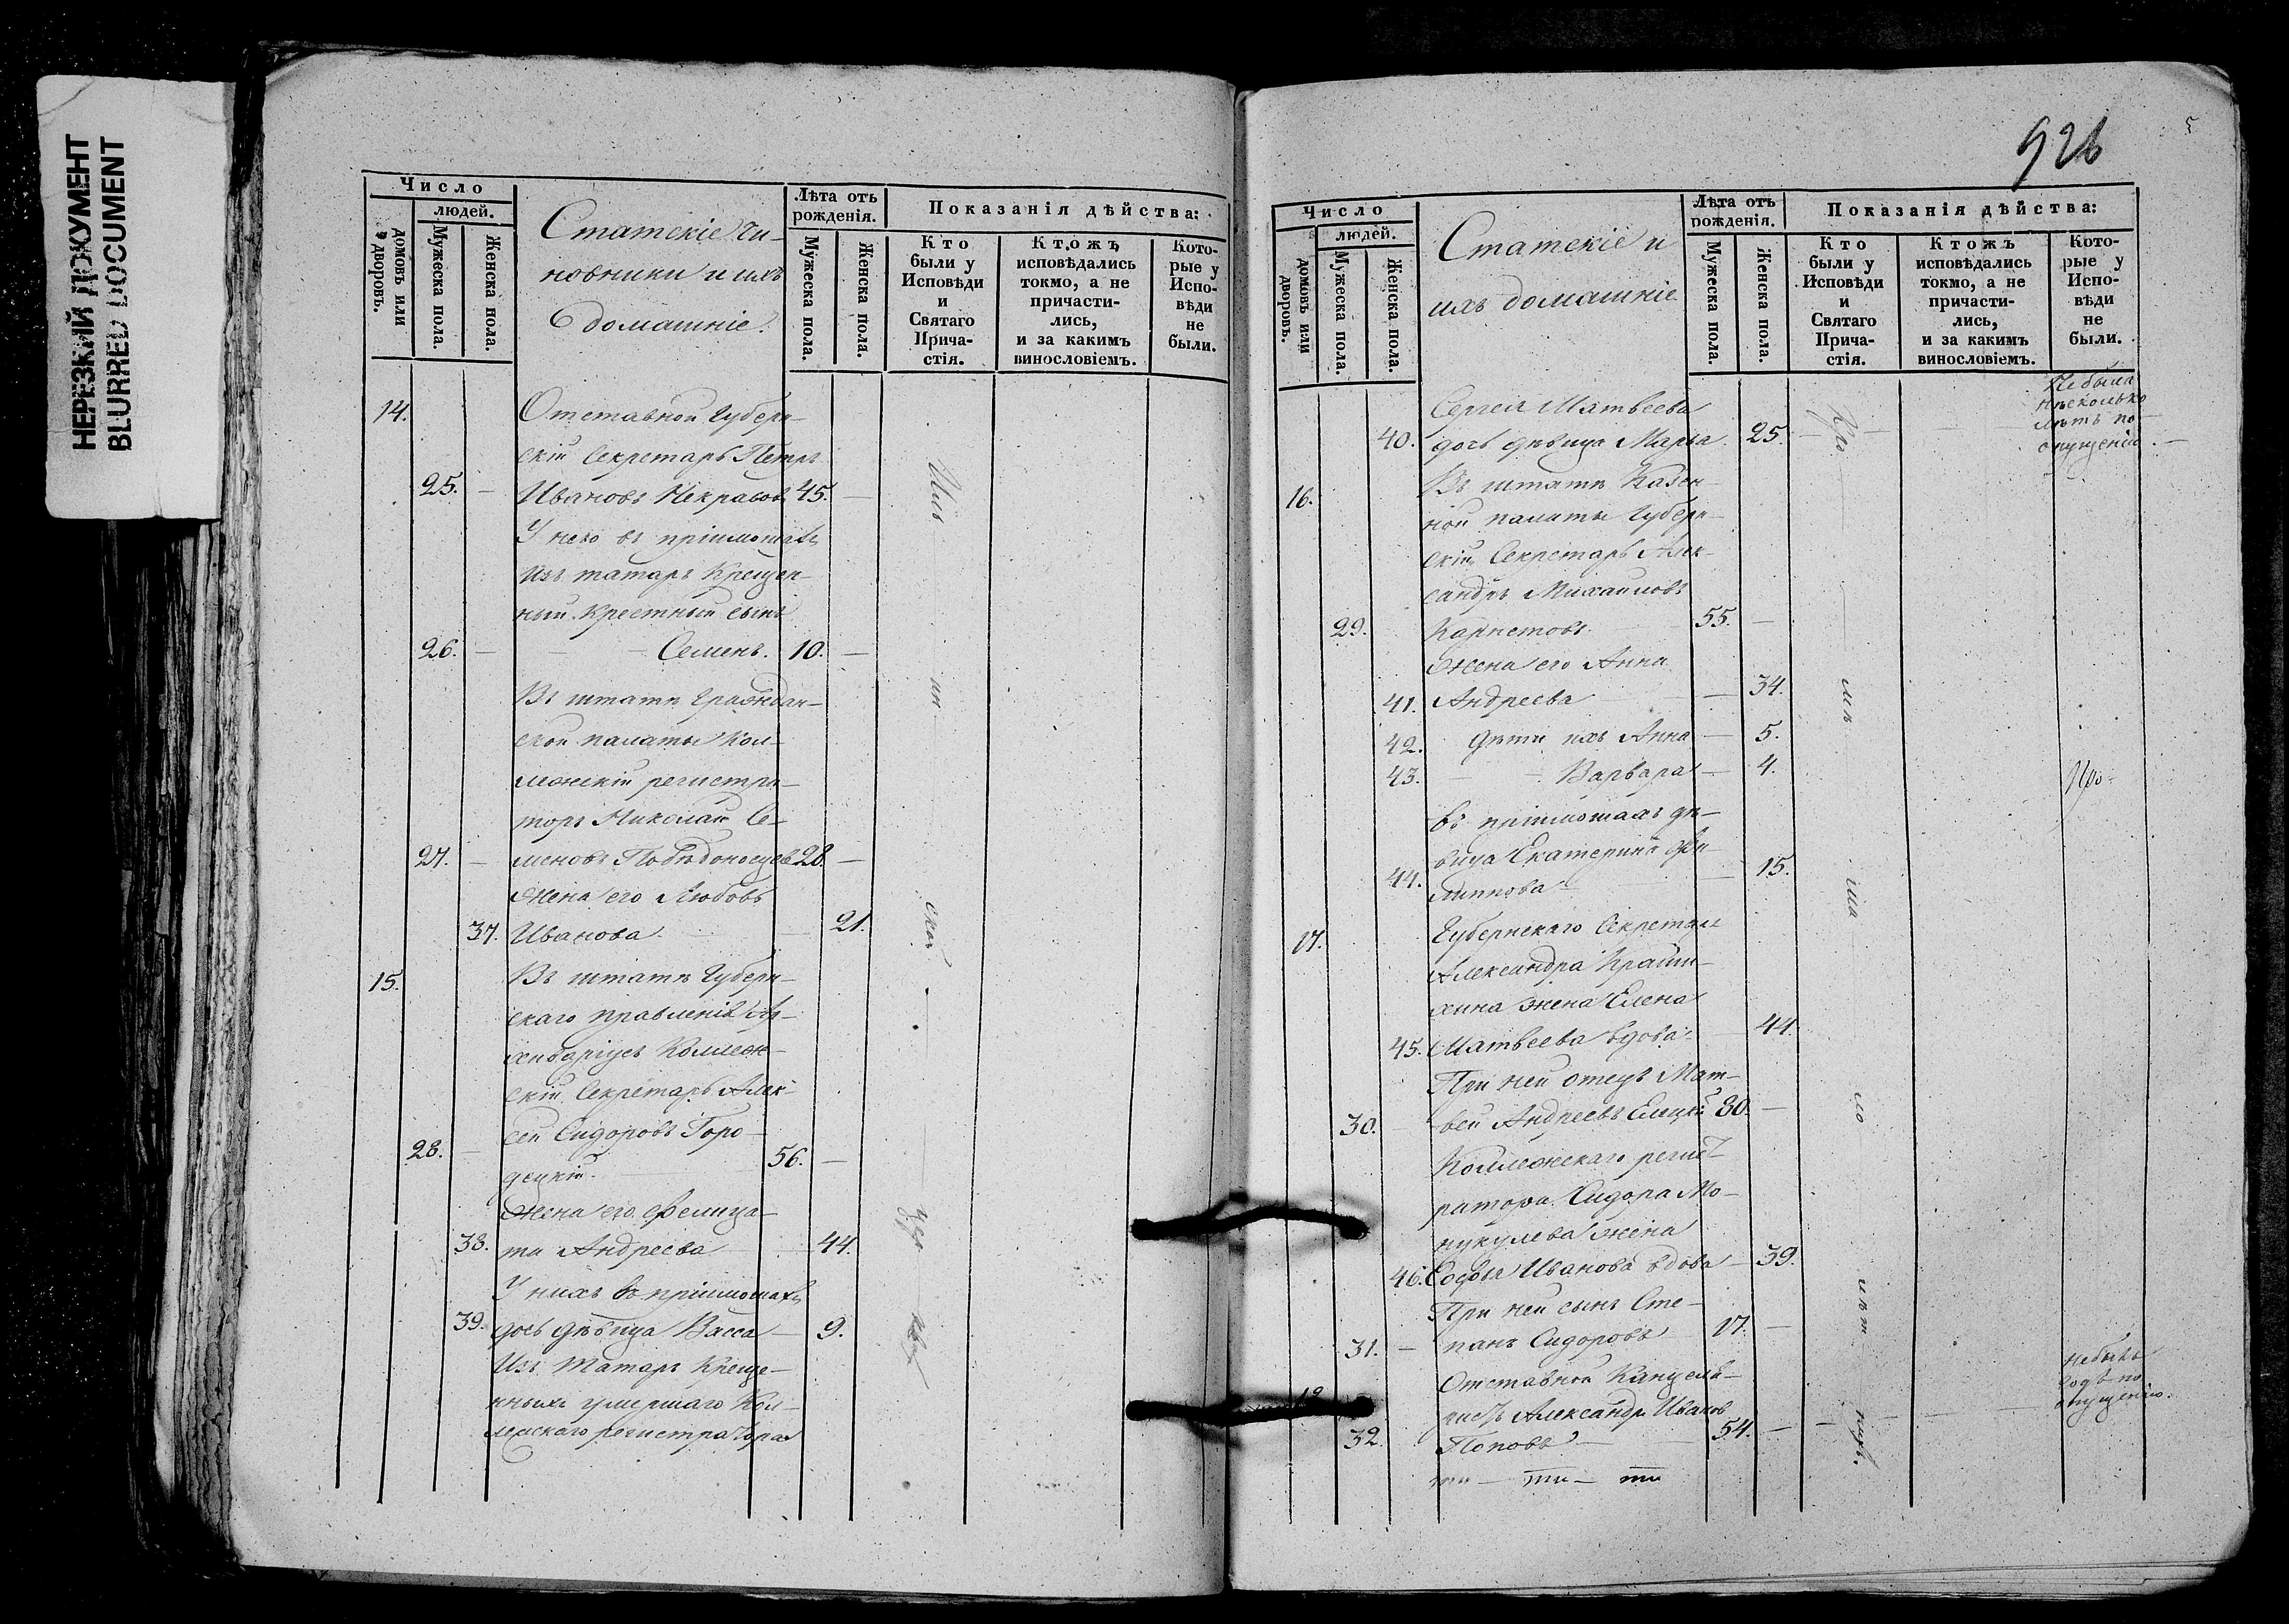 НЕРЕЗКИЙ ДОКУМЕНТ
BLURRED DOCUMENT
Число
людей.
домовъ или дворовъ.
Мужеска пола.
Женска пола.
Статскіе чи-
новники и ихъ
домашніе.
Лѣта отъ рожденія.
Мужеска пола.
Женска пола.
Показанія дѣйства:
Кто были у Исповѣди и Святаго Прича-стія.
Ктожъ исповѣдались токмо, а не причасти-лись, и за какимъ винословіемъ.
Кото-рые у Испо-вѣди не были.
14. Отставной Губерн-
скій Секретарь Петръ
25. Ивановъ Некрасовъ 45.
У него въ пріимышахъ
изъ татаръ Крещен-
ный крестный сынъ
26. Семенъ. 10.
Въ штатѣ Граждан-
ской палаты Кол-
лежскій регистра-
торъ Николай Се-
27. меновъ Побѣдоносцевъ 28.
Жена его Любовь
37. Иванова 21.
15. Въ штатѣ Губерн-
скаго правленія Ар-
хиваріусъ Коллеж-
скій Секретарь Алек-
сѣй Сидоровъ Горо-
28. децкій. 56.
Жена его Фелица-
38. та Андреева 44.
У нихъ въ пріимышахъ
39. дочь дѣвица Васса 9.
Изъ Татаръ Креще-
нныхъ умершаго Кол-
лежскаго регистратора
926
Число
людей.
домовъ или дворовъ.
Мужеска пола.
Женска пола.
Статскіе и
ихъ домашніе
Лѣта отъ рожденія.
Мужеска пола.
Женска пола.
Показанія дѣйства:
Кто были у Исповѣди и Святаго Прича-стія.
Ктожъ исповѣдались токмо, а не причасти-лись, и за какимъ винословіемъ.
Кото-рые у Испо-вѣди не были.
Сергея Матвеева
40. дочь дѣвица Марья 25.
Не была
нѣсколько
лѣтъ по
опущенію.
16. Въ штатѣ Казен-
ной палаты Губерн-
скій Секретарь Алек-
сандръ Михайловъ
29. 55.
Жена его Анна
41. Андреева 34.
42. Дѣти ихъ Анна 5.
43. Варвара 4.
въ пріимышахъ дѣ-
вица Екатерина Фи-
44. липпова 15.
17. Губернскаго Секретаря
Александра
жена Елена
45. Матвеева вдова 44.
При ней отецъ Мат-
30. вей Андреевъ 80.
Коллежскаго регист-
ратора Сидора Мо-
жена
46. Софья Иванова вдова 39.
При ней сынъ Сте-
31. панъ Сидоровъ 17.
18 Отставной Канцеля-
ристъ Александръ Иванов
32. Поповъ 54.
не былъ
годъ по
опущенію.